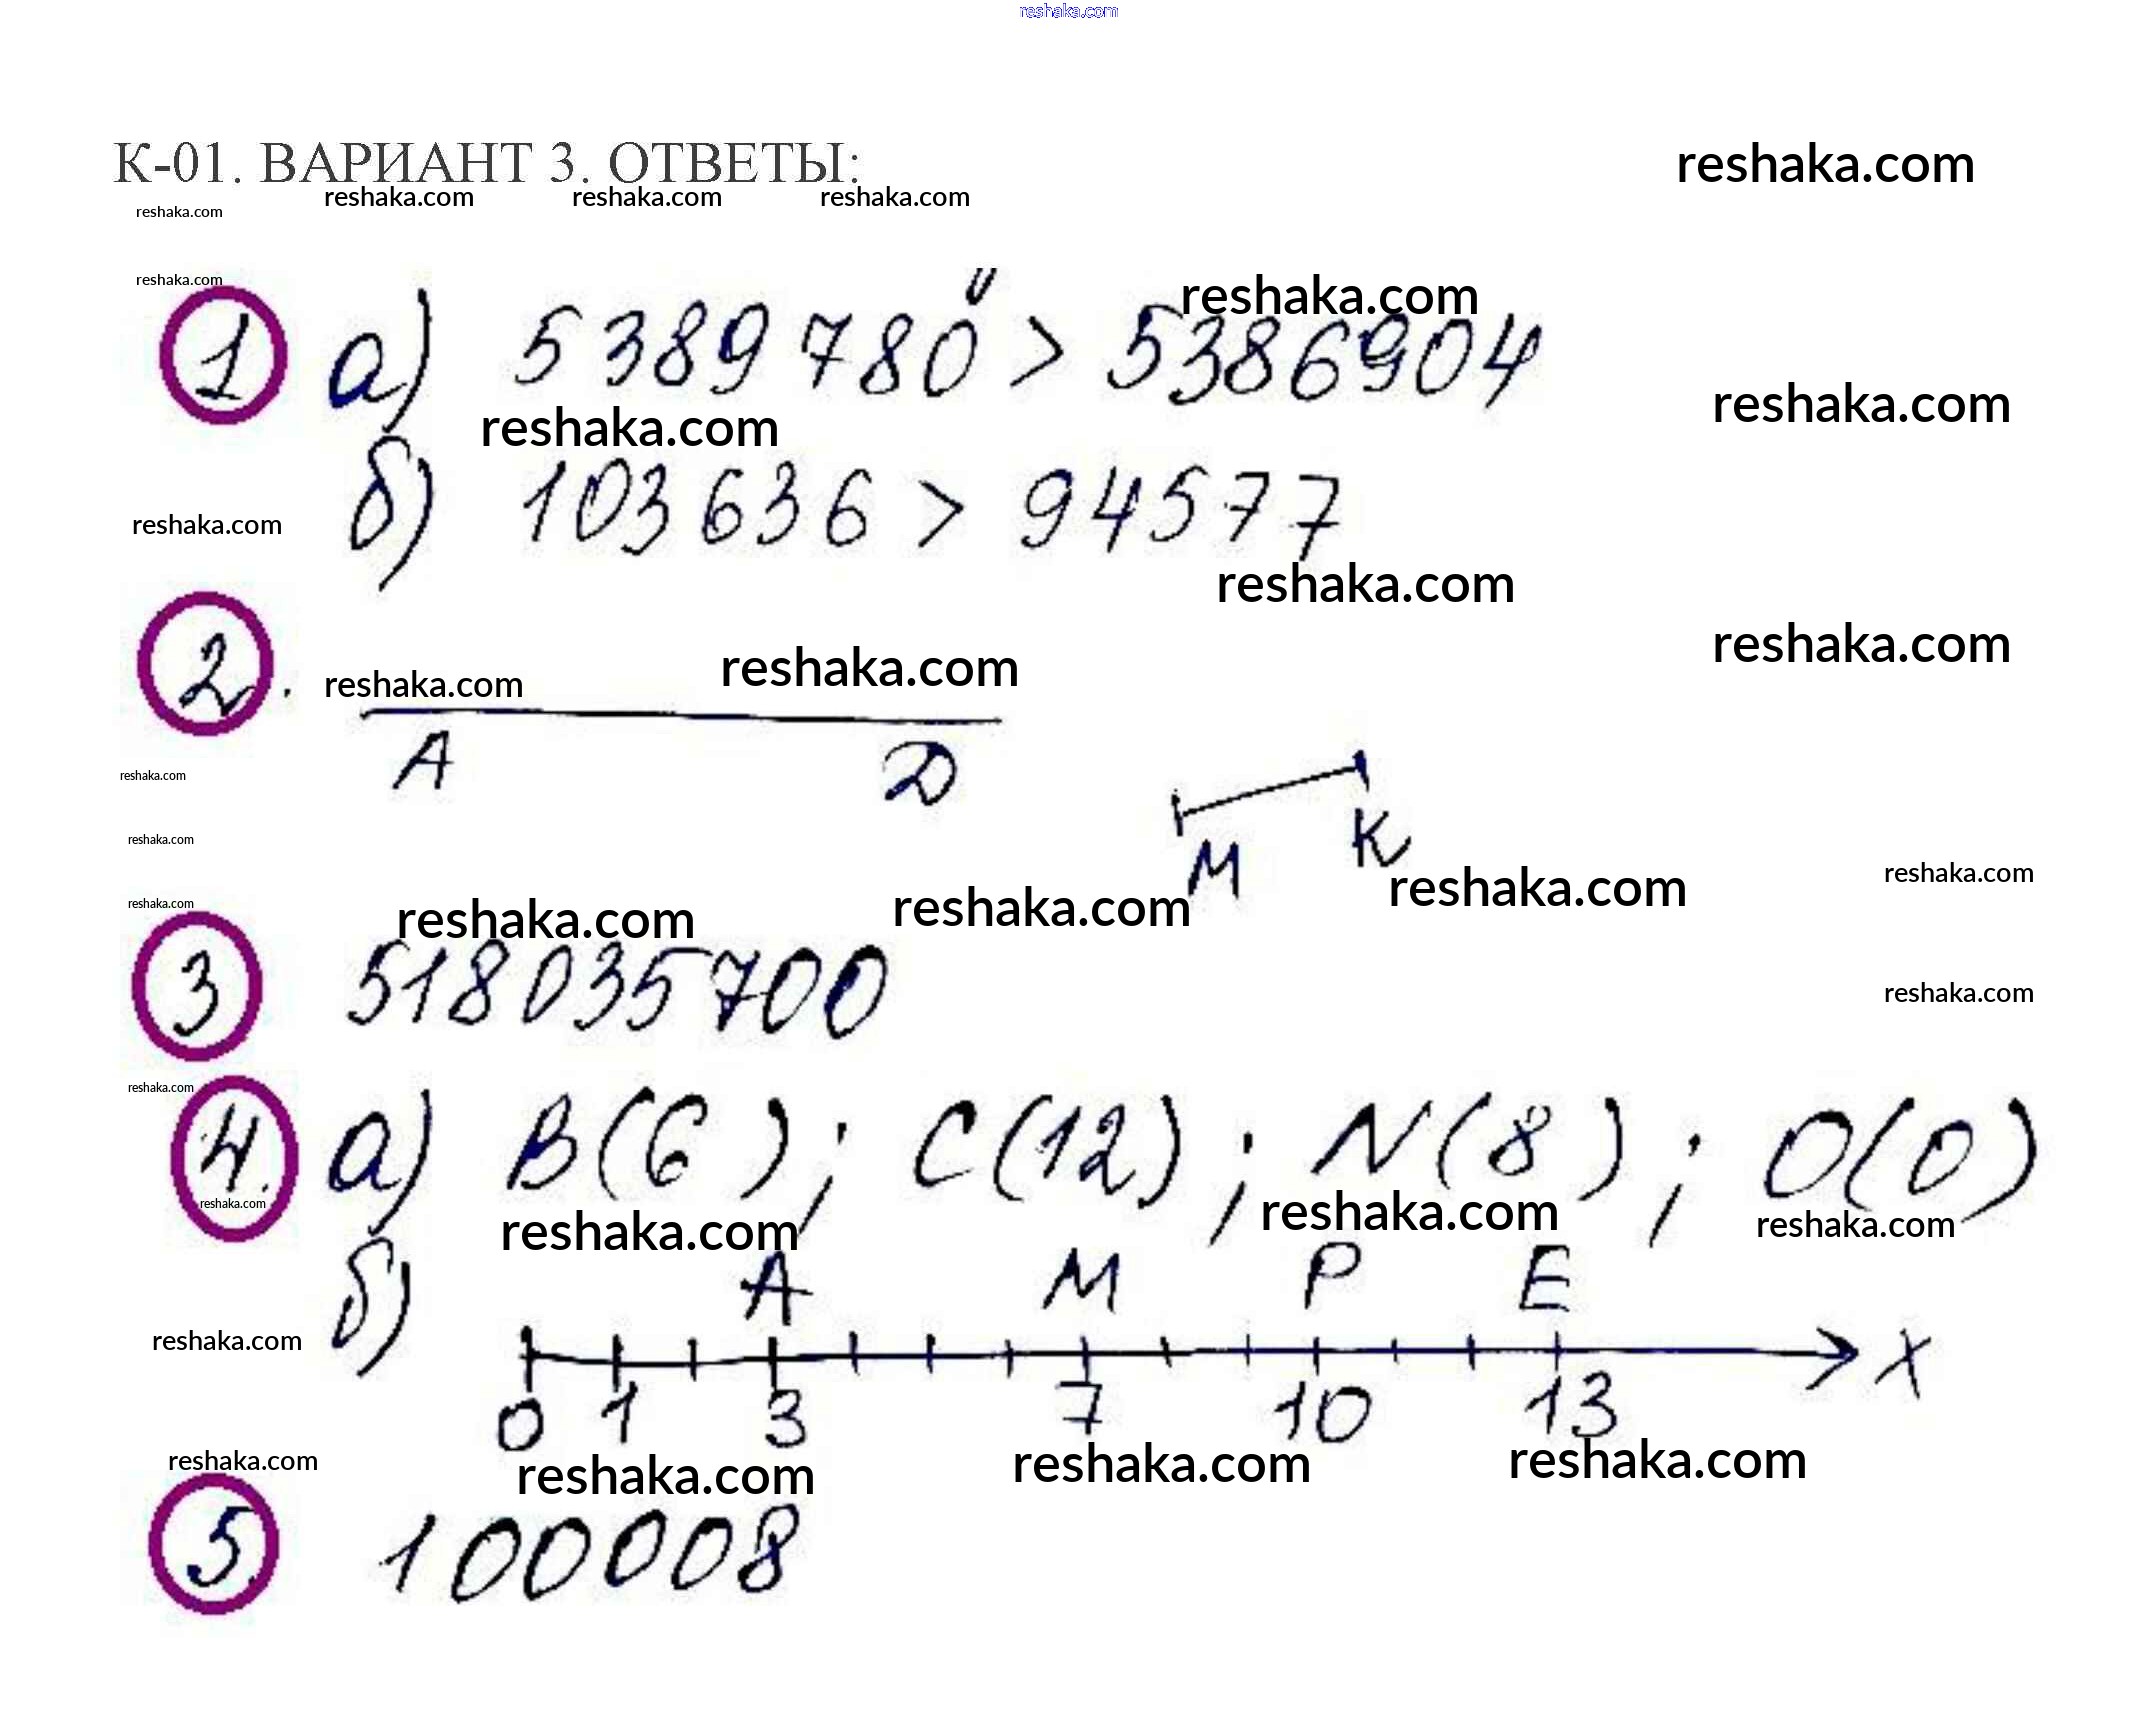 reshaka.com
К-01. ВАРИАНТ 3. ОТВЕТЫ: reshaka.com
reshaka.com reshaka.com reshaka.com reshaka.com
reshaka.com reshaka.com
1 а) 5389780 > 5386904
reshaka.com reshaka.com
б) 103636 > 94577
reshaka.com
reshaka.com
2. reshaka.com reshaka.com reshaka.com
A D
reshaka.com M K
reshaka.com
reshaka.com reshaka.com reshaka.com reshaka.com reshaka.com
3 518035700 reshaka.com
reshaka.com
4. а) B(6); C(12); N(8); O(0)
reshaka.com reshaka.com reshaka.com reshaka.com
б) A M P E
reshaka.com X
0 1 3 7 10 13
reshaka.com reshaka.com reshaka.com reshaka.com
5. 100008